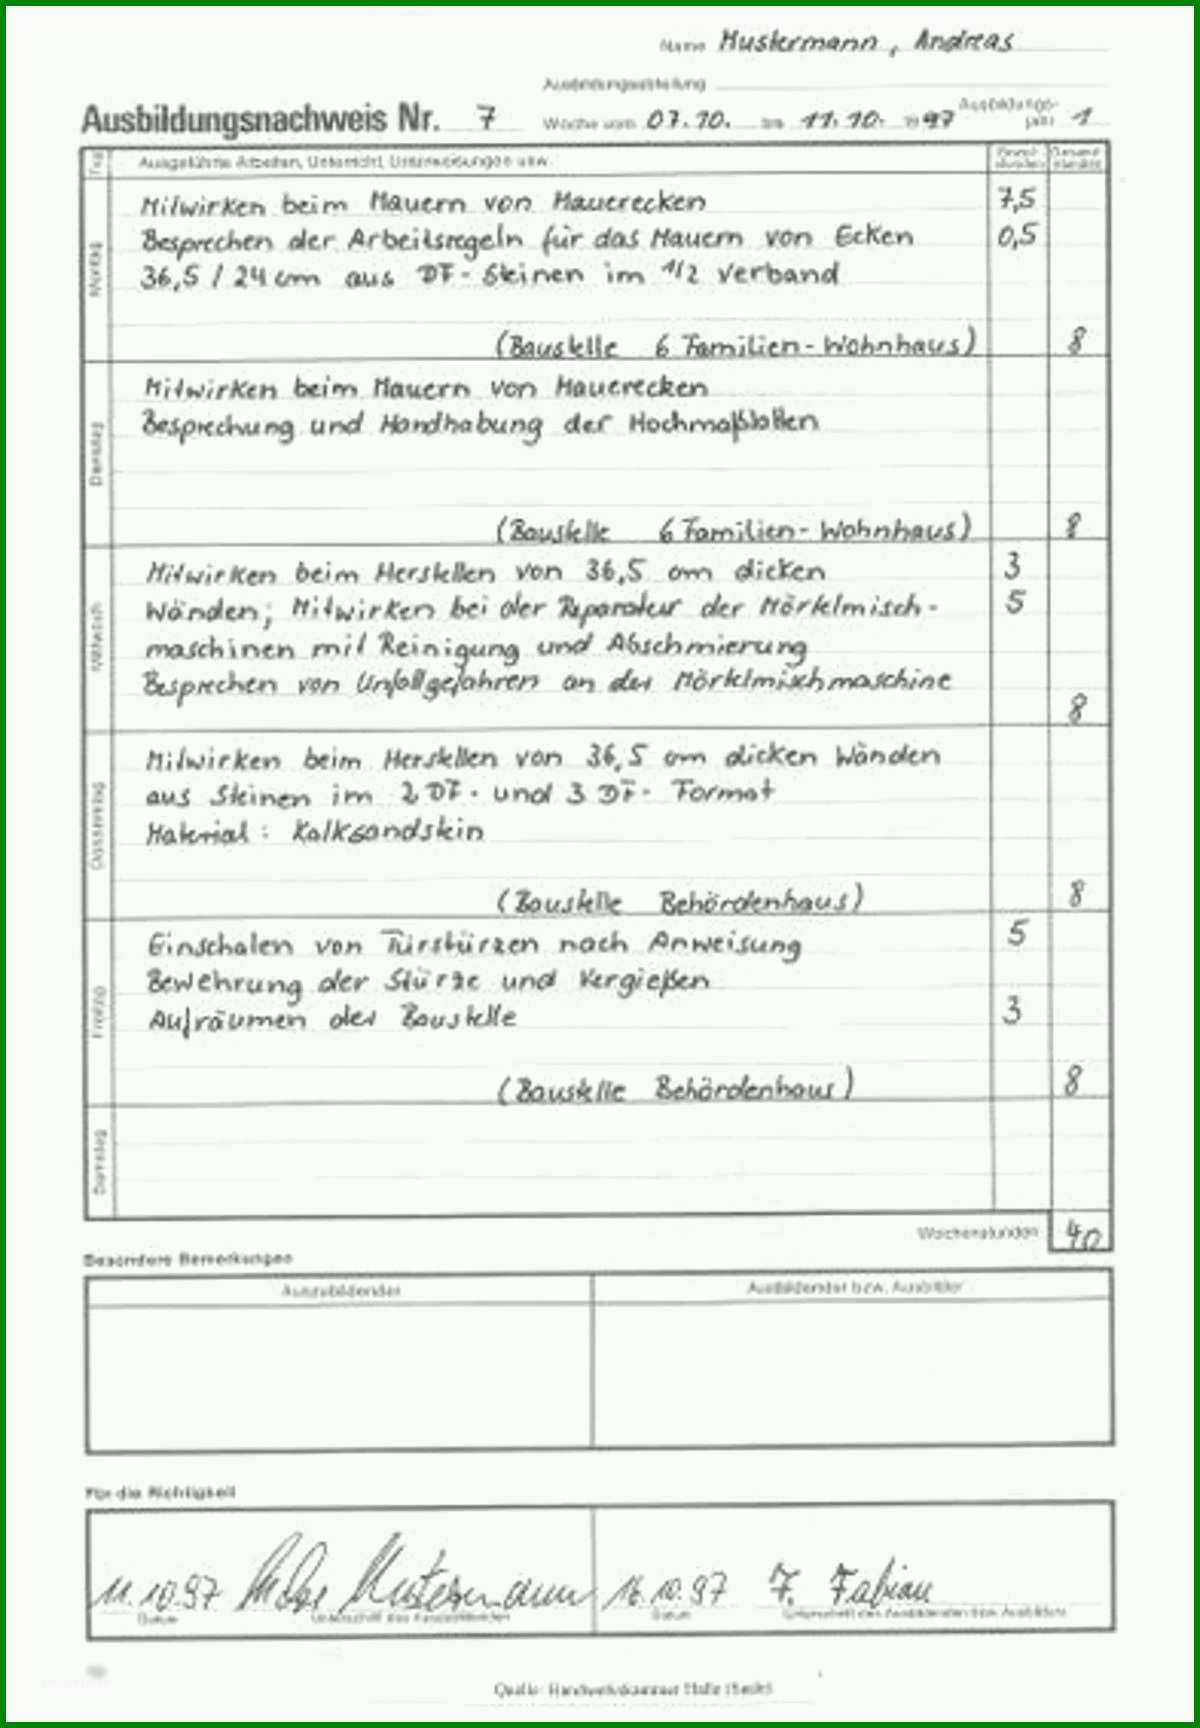 Name Mustermann, Andreas
Ausbildungsabteilung
Ausbildungsnachweis Nr. 7 Woche vom 07.10. bis 11.10. 1997 Ausbildungs-
jahr 1
Tag Ausgeführte Arbeiten, Unterricht, Unterweisungen usw. Einzel-
stunden Gesamt-
stunden
Montag
Mitwirken beim Mauern von Mauerecken 7,5
Besprechen der Arbeitsregeln für das Mauern von Ecken 0,5
36,5 / 24 cm aus DF-Steinen im 1/2 Verband
(Baustelle 6 Familien-Wohnhaus) 8
Dienstag
Mitwirken beim Mauern von Mauerecken
Besprechung und Handhabung der Hochmaßlatten
(Baustelle 6 Familien-Wohnhaus) 8
Mittwoch
Mitwirken beim Herstellen von 36,5 cm dicken 3
Wänden; Mitwirken bei der Reparatur der Mörtelmisch- 5
maschinen mit Reinigung und Abschmierung
Besprechen von Unfallgefahren an der Mörtelmischmaschine
8
Donnerstag
Mitwirken beim Herstellen von 36,5 cm dicken Wänden
aus Steinen im 2 DF- und 3 DF- Format
Material: Kalksandstein
(Baustelle Behördenhaus) 8
Freitag
Einschalen von Türstürzen nach Anweisung 5
Bewehrung der Stürze und Vergießen
Aufräumen der Baustelle 3
(Baustelle Behördenhaus) 8
Samstag
Wochenstunden 40
Besondere Bemerkungen
Auszubildender Ausbildender bzw. Ausbilder
Für die Richtigkeit
11.10.97 Andreas Mustermann 16.10.97 F. Fabian
Datum Unterschrift des Auszubildenden Datum Unterschrift des Ausbildenden bzw. Ausbilders
Quelle: Handwerkskammer Halle (Saale)